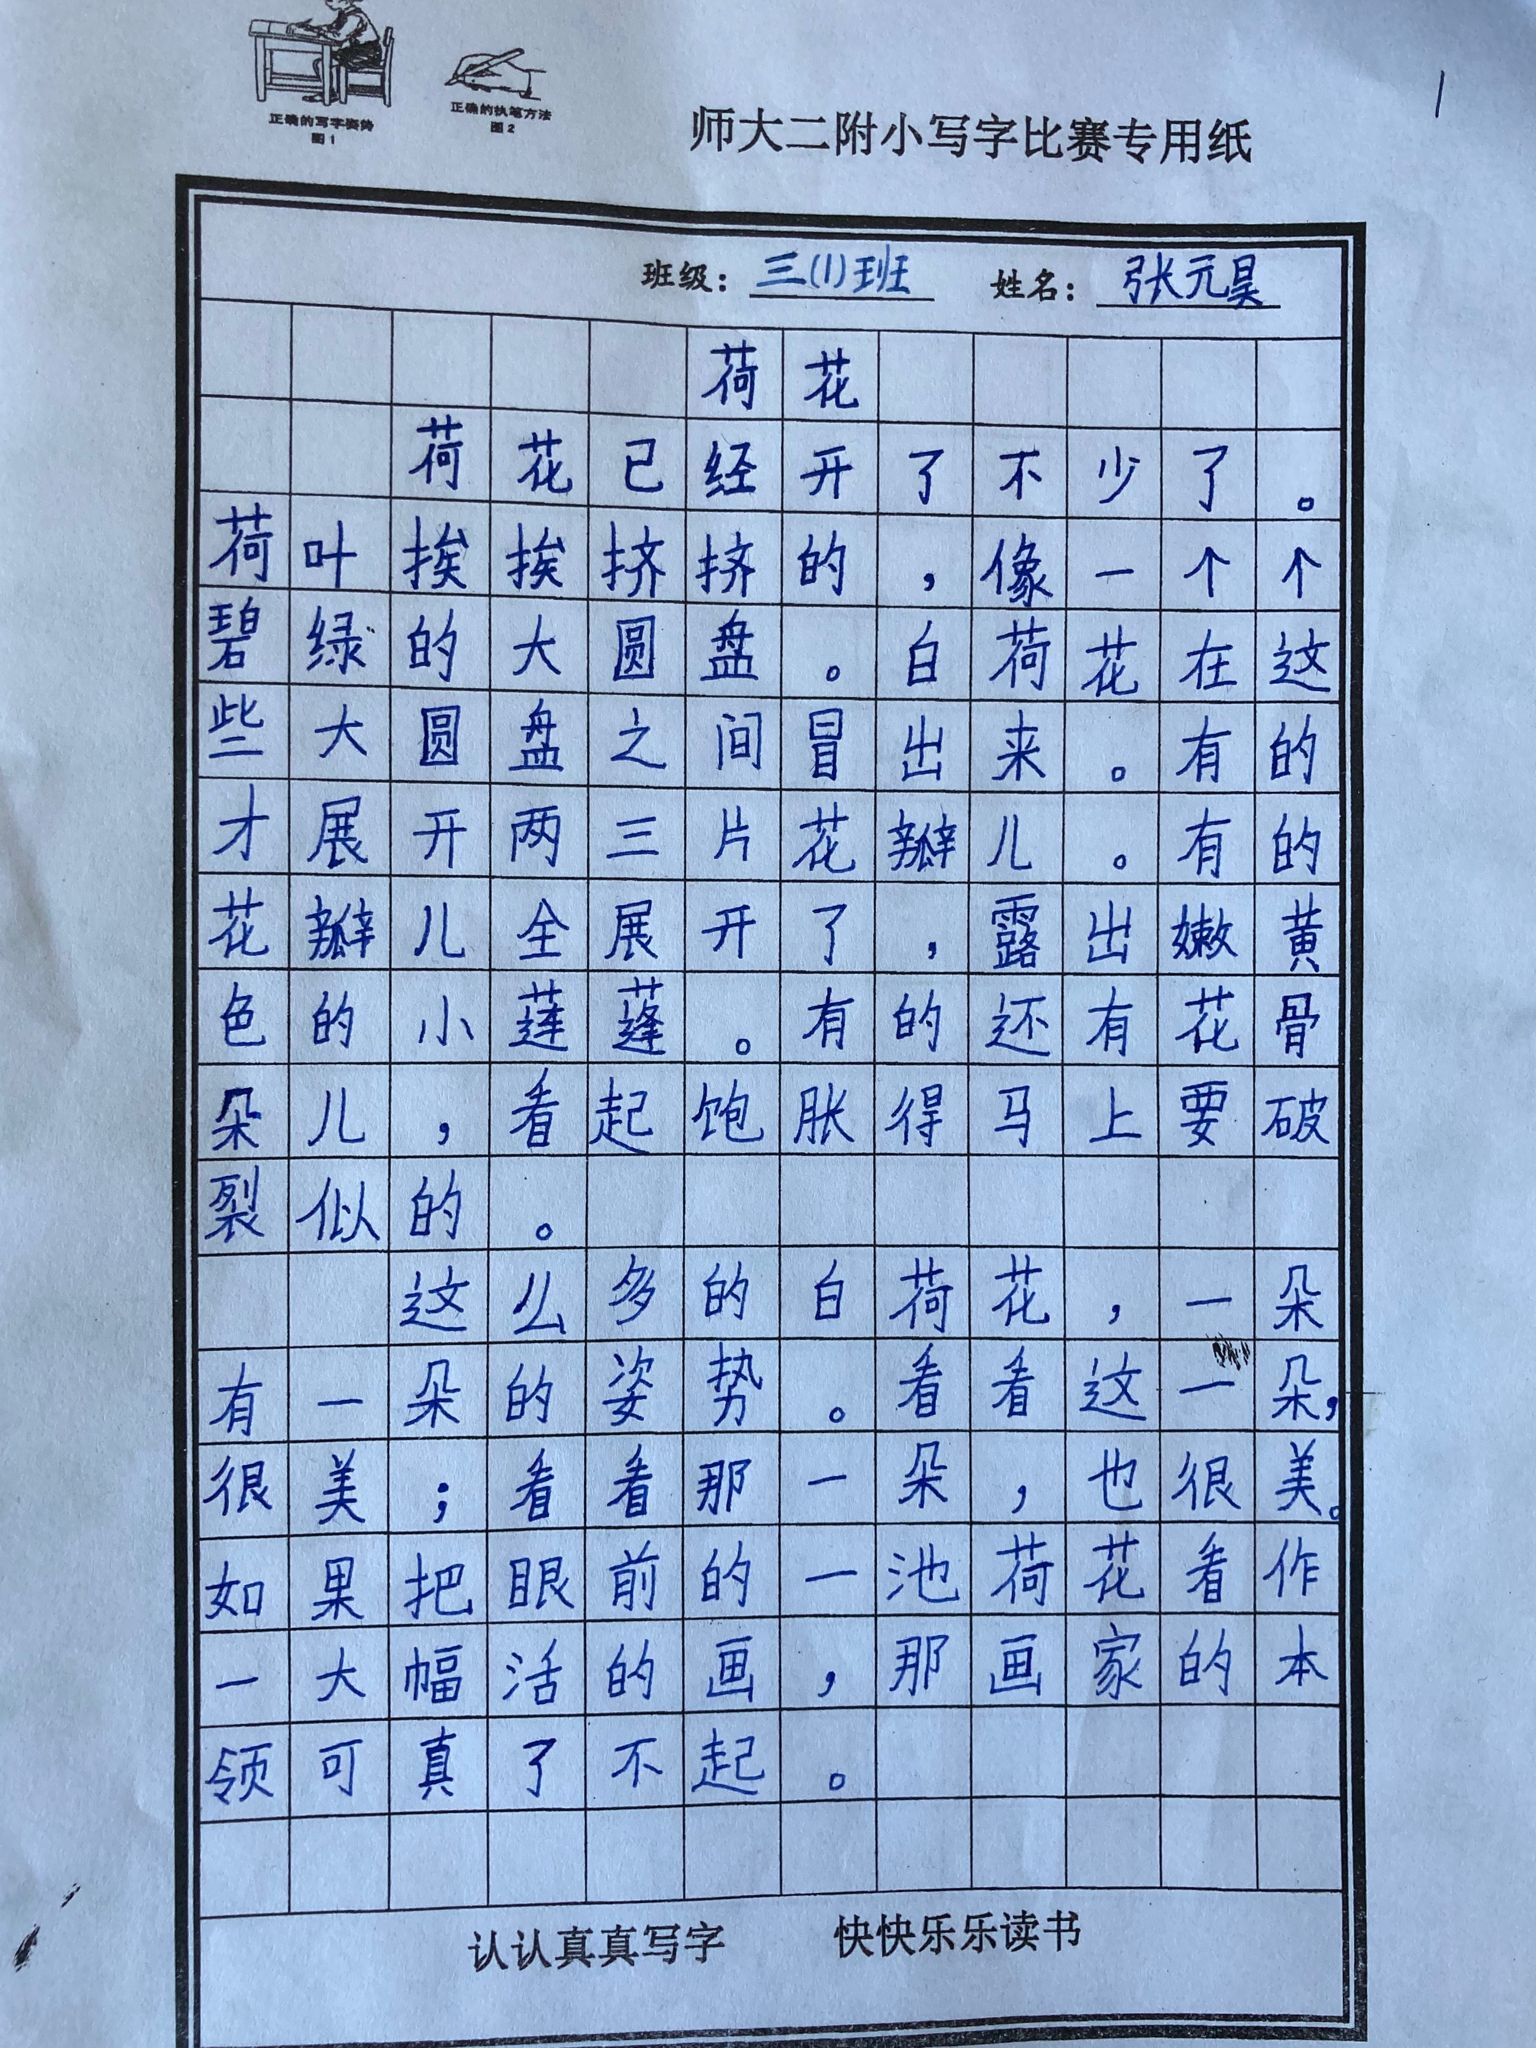 正确的写字姿势
图1
正确的执笔方法
图2
师大二附小写字比赛专用纸
1
班级：三(1)班 姓名：张元昊
荷花
荷花已经开了不少了。
荷叶挨挨挤挤的，像一个个
碧绿的大圆盘。白荷花在这
些大圆盘之间冒出来。有的
才展开两三片花瓣儿。有的
花瓣儿全展开了，露出嫩黄
色的小莲蓬。有的还有花骨
朵儿，看起饱胀得马上要破
裂似的。
这么多的白荷花，一朵
有一朵的姿势。看看这一朵，
很美；看看那一朵，也很美。
如果把眼前的一池荷花看作
一大幅活的画，那画家的本
领可真了不起。
认认真真写字 快快乐乐读书